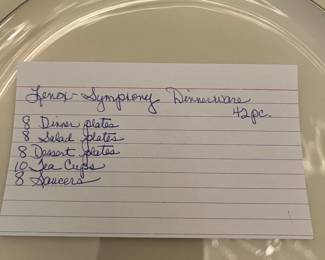 Lenox - Symphony Dinnerware
42 pc.
8 Dinner plates
8 Salad plates
8 Dessert plates
10 Tea Cups
8 Saucers